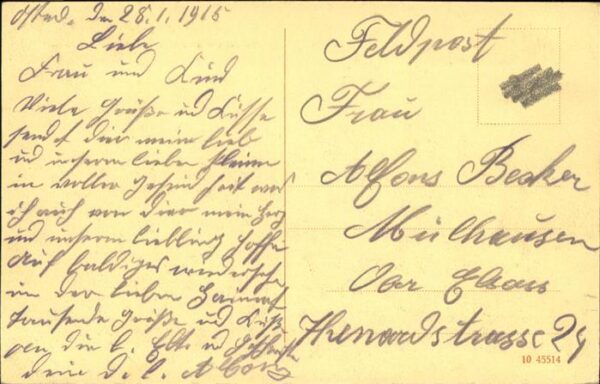 Osten, den 28.1.1915
Liebe
Frau und Kind
Viele Grüße und Küsse
sendet dier mein lieb
und unserm lieben kleinen
in voller Gesundheit was
ich auch von dier mein Herz
und unserm liebling hoffe
Auf baldiges wiedersehn
in der lieben Heimat
Tausende Grüße und Küsse
an die l. Elt. und
dein d. l. Alfons
Feldpost
Frau
Alfons Becker
Mülhausen
Ober Elsass
Thenardstrasse 29
10 45514